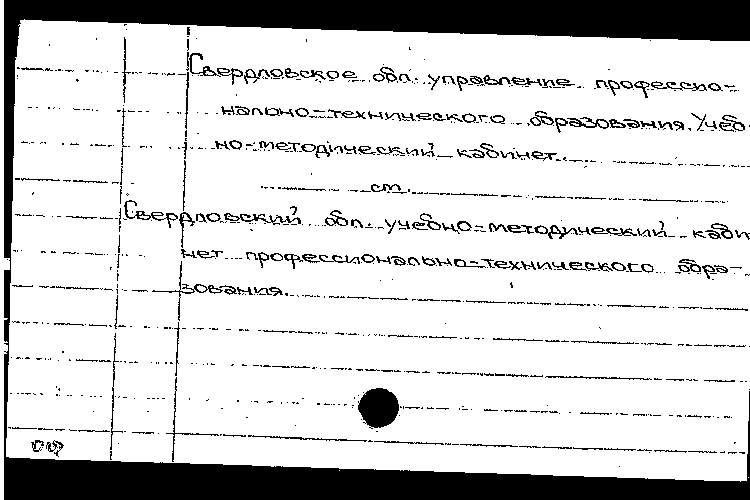 Свердловское обл. управление профессио-
нально-технического образования. Учеб-
но-методический кабинет.
см.
Свердловский обл. учебно-методический каби
нет профессионально-технического обра-
зования.